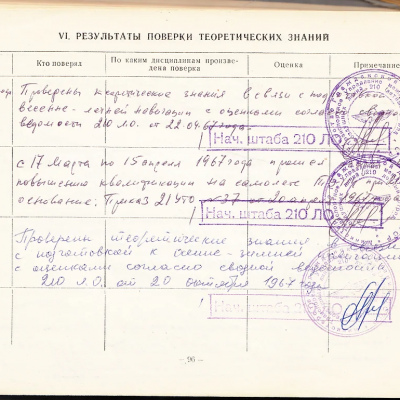 VI. РЕЗУЛЬТАТЫ ПОВЕРКИ ТЕОРЕТИЧЕСКИХ ЗНАНИЙ
Кто поверял
По каким дисциплинам произведена поверка
Оценка
Примечание
Проверены теоретические знания в связи с под
весенне-летней навигации с оценками согл. сводной
ведомости 210 ЛО. от 22.04.67 года
Нач. штаба 210 ЛО
с 17 марта по 15 апреля 1967 года прошел
повышение квалификации на самолете
основание: Приказ 21 37 от 20 апр 1967 года
Нач. штаба 210 ЛО
Проверены теоретические знания в
с подготовкой к осенне-зимней навигации
с оценками согласно сводной ведомости
210 Л.О. от 20 октября 1967 года
Нач. штаба 210 ЛО
– 96 –